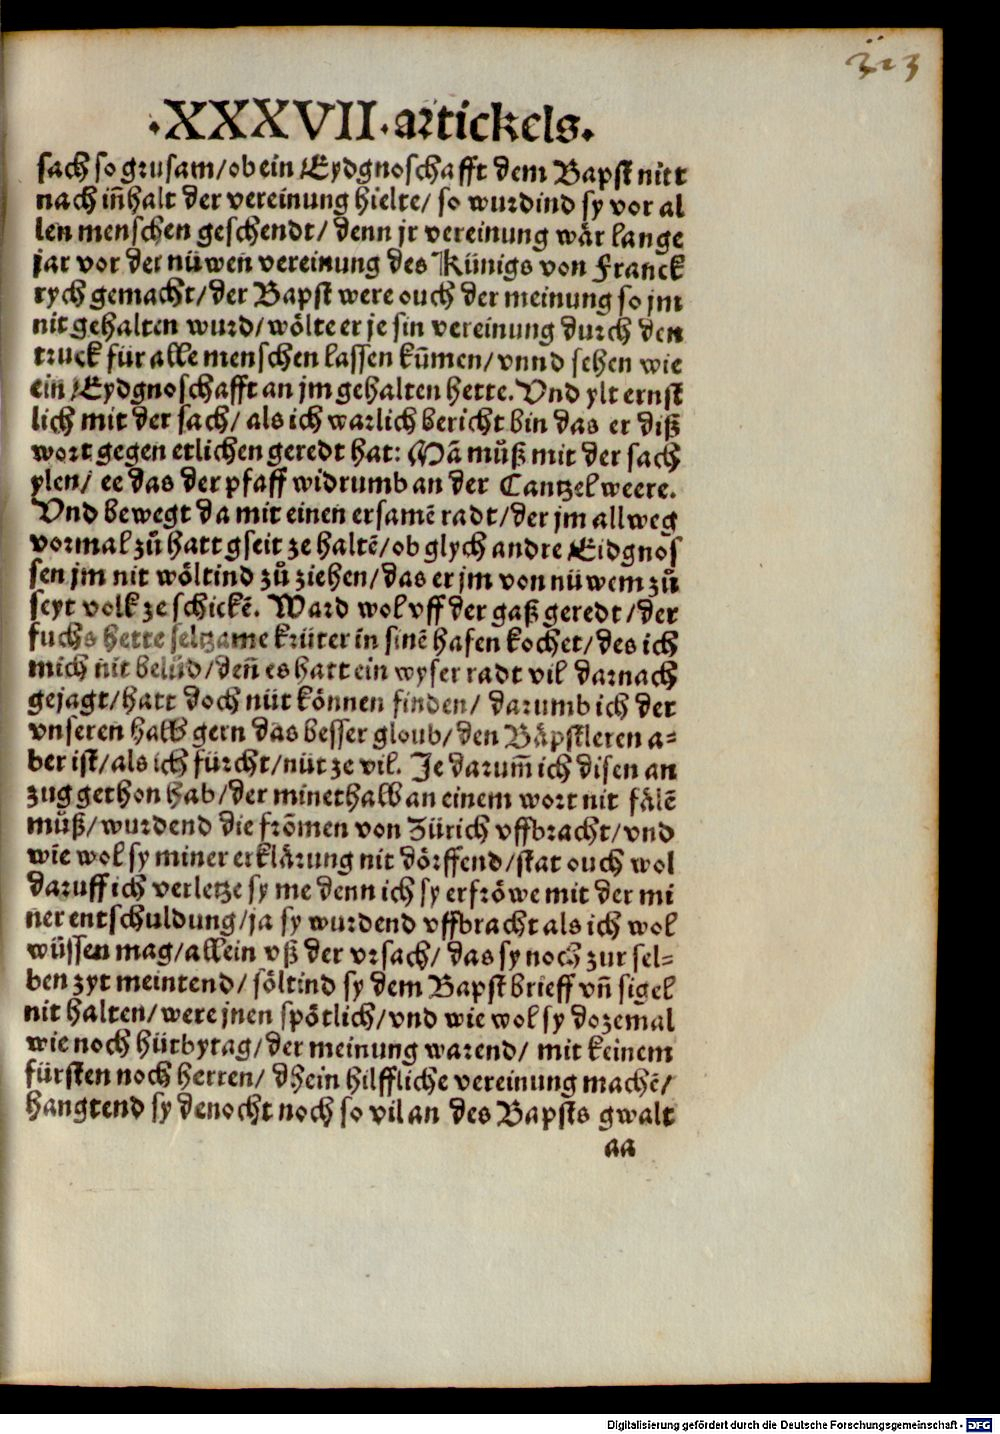 313
.XXXVII. artickels.
sach so grusam/ob ein Eydgnoschafft dem Bapst nitt
nach iñhalt der vereinung hielte/ so wurdind sy vor al
len menschen geschendt/ denn jr vereinung wär lange
jar vor der nüwen vereinung des Künigs von Franck
rych gemacht/der Bapst were ouch der meinung so jm
nit gehalten wurd/wölte er je sin vereinung durch den
truck für alle menschen lassen kum̄en/vnnd sehen wie
ein Eydgnoschafft an jm gehalten hette. Vnd ylt ernst
lich mit der sach/ als ich warlich bericht bin das er diß
wort gegen etlichen geredt hat: Mā můß mit der sach
ylen/ ee das der pfaff widrumb an der Cantzel weere.
Vnd bewegt da mit einen ersamē radt/der jm allweg
vormal zů hatt gseit ze haltē/ob glych andre Eidgnos
sen jm nit wöltind zů ziehen/das er jm von nüwem zů
seyt volk ze schickē. Ward wol vff der gaß geredt/der
fuchs hette seltzame krüter in sinē hafen kochet/des ich
mich nit belüd/deñ es hatt ein wyser radt vil darnach
gejagt/hatt doch nüt können finden/ darumb ich der
vnseren halb gern das besser gloub/den Bäpstleren a⸗
ber ist/als ich fürcht/nüt ze vil. Je darum̄ ich disen an
zug gethon hab/der minethalb an einem wort nit fälē
můß/wurdend die from̄en von Zürich vffbracht/vnd
wie wol sy miner erklärung nit dörffend/stat ouch wol
daruff ich verletze sy me denn ich sy erfröwe mit der mi
ner entschuldung/ja sy wurdend vffbracht als ich wol
wüssen mag/allein vß der vrsach/ das sy noch zur sel⸗
ben zyt meintend/ söltind sy dem Bapst brieff vñ sigel
nit halten/were jnen spötlich/vnd wie wol sy dozemal
wie noch hütbytag/der meinung warend/ mit keinem
fürsten noch herren/ dhein hilffliche vereinung machē/
hangtend sy denocht noch so vil an des Bapsts gwalt
aa
Digitalisierung gefördert durch die Deutsche Forschungsgemeinschaft - DFG